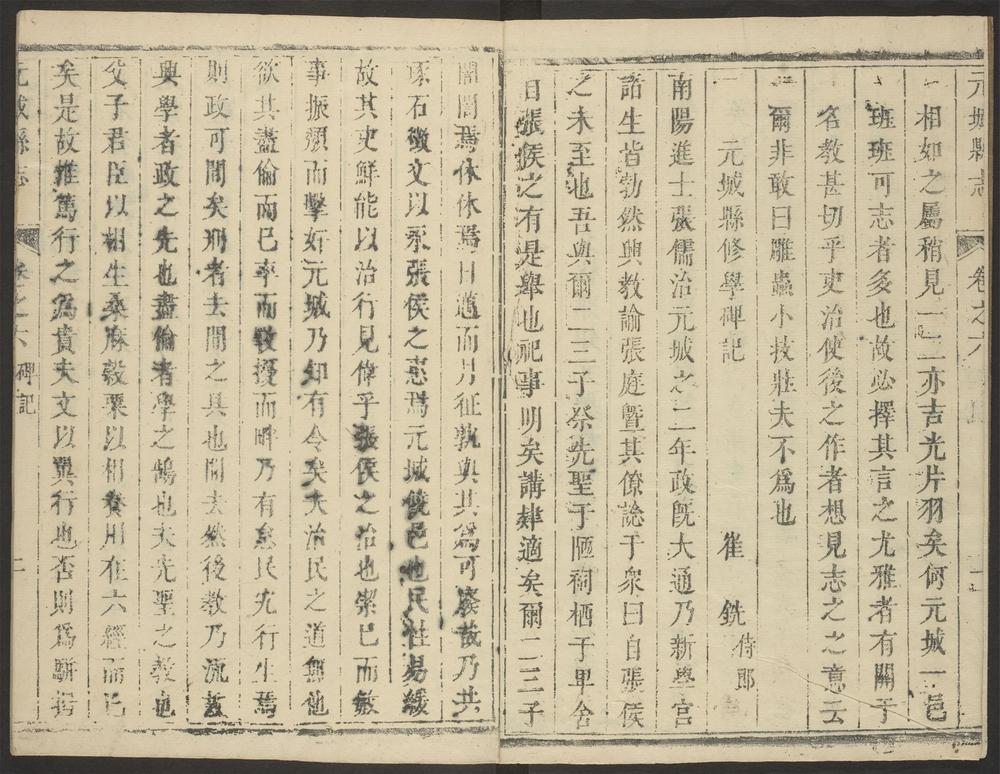 元城縣志
卷之六
相如之屬稍見一二亦吉光片羽矣何元城一邑
班班可志者多也故必擇其言之尤雅者有關于
名教甚切乎吏治使後之作者想見志之之意云
爾非敢曰雕蟲小技壯夫不為也
元城縣修學碑記
崔銑侍郎
南陽進士張儒治元城之二年政旣大通乃新學宮
諸生皆勃然興教諭張庭曁其僚詵于衆曰自張侯
之未至也吾與爾二三子祭先聖于陋祠栖子卑舍
自張侯之有是舉也祀事明矣講肄適矣爾二三子
誾誾焉休休焉日邁而月征孰與其爲可廢哉乃共
琢石徵文以永張侯之惠焉元城僿邑也民社易緩
故其吏鮮能以治行見偉乎張侯之治也潔已而敏
事振頽而擊奸元城乃知有令矣夫治民之道無他
欲其盡倫而已率而敎擾而畔乃有怠民宄行生焉
則政可閒矣刑者去閒之具也閒去然後教乃流故
興學者政之先也盡倫者學之鵠也夫先聖之敎也
父子君臣以相生桑麻穀粟以相養用在六經而已
矣是故惟篤行之爲貴夫文以翼行也否則爲斬
元城縣志
卷之六 碑記
二